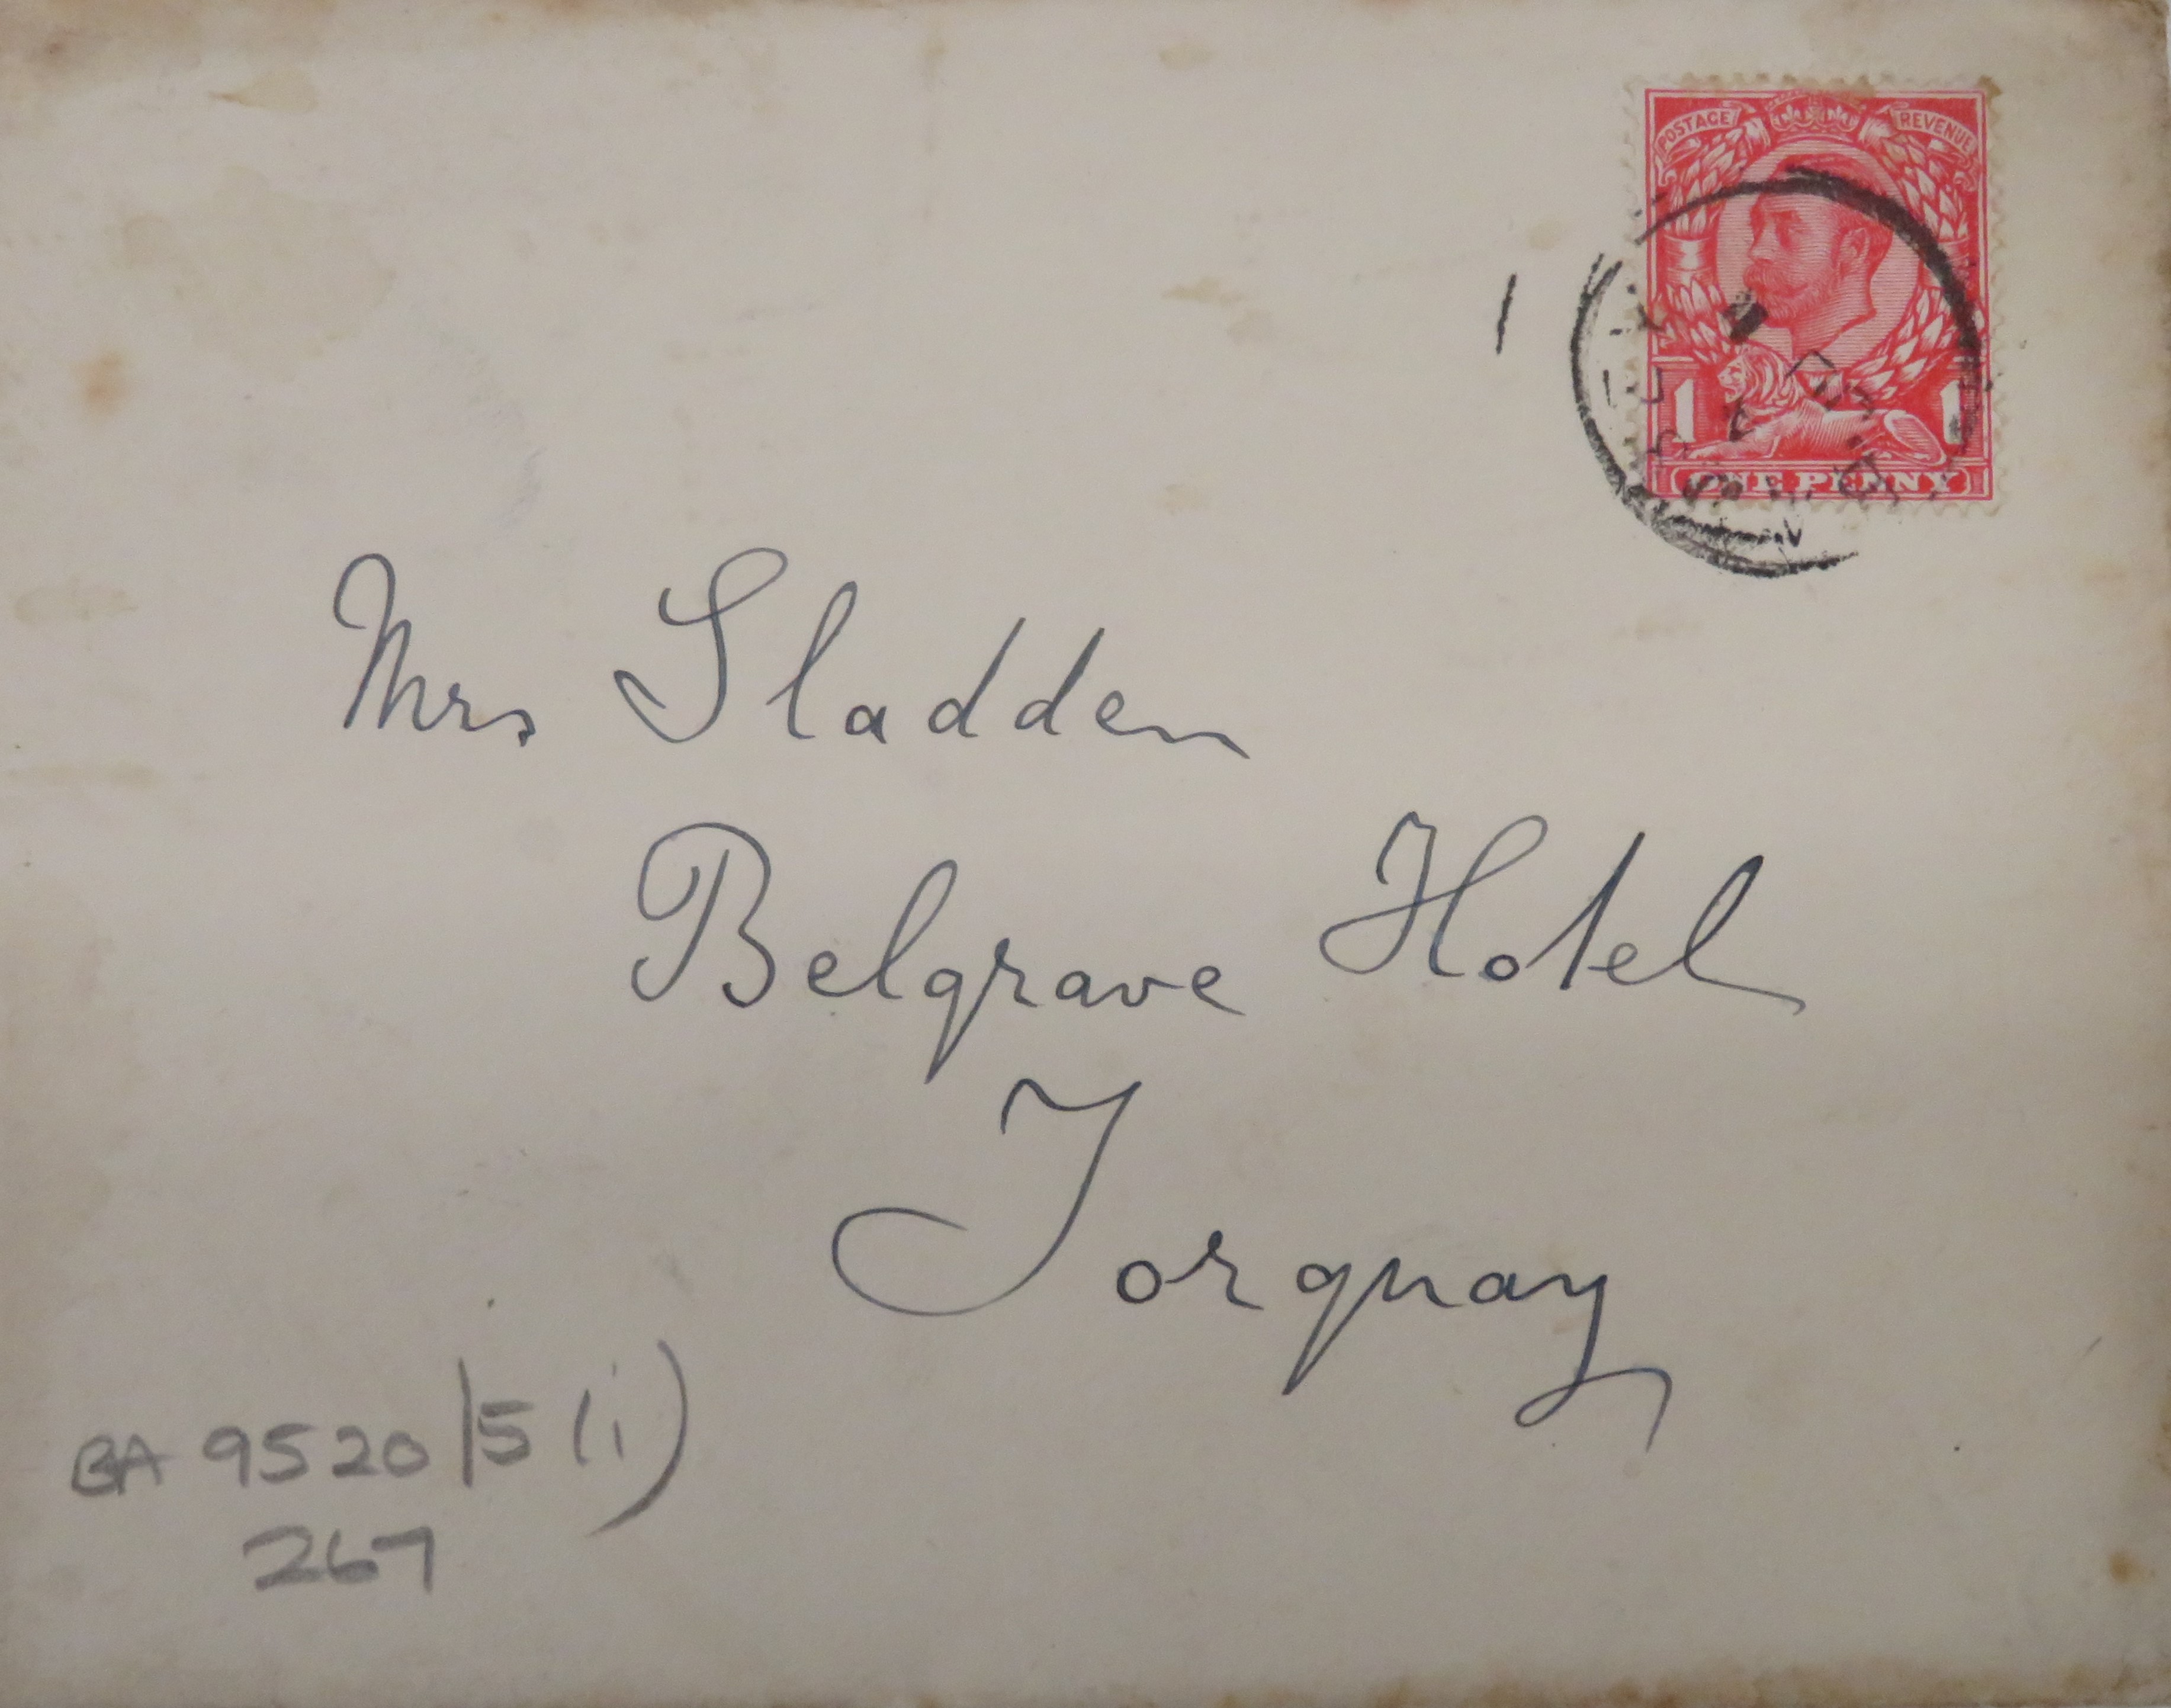 POSTAGE REVENUE
1 1
ONE PENNY
Mrs Sladden
Belgrave Hotel
Torquay
BA 9520/5(i)
267